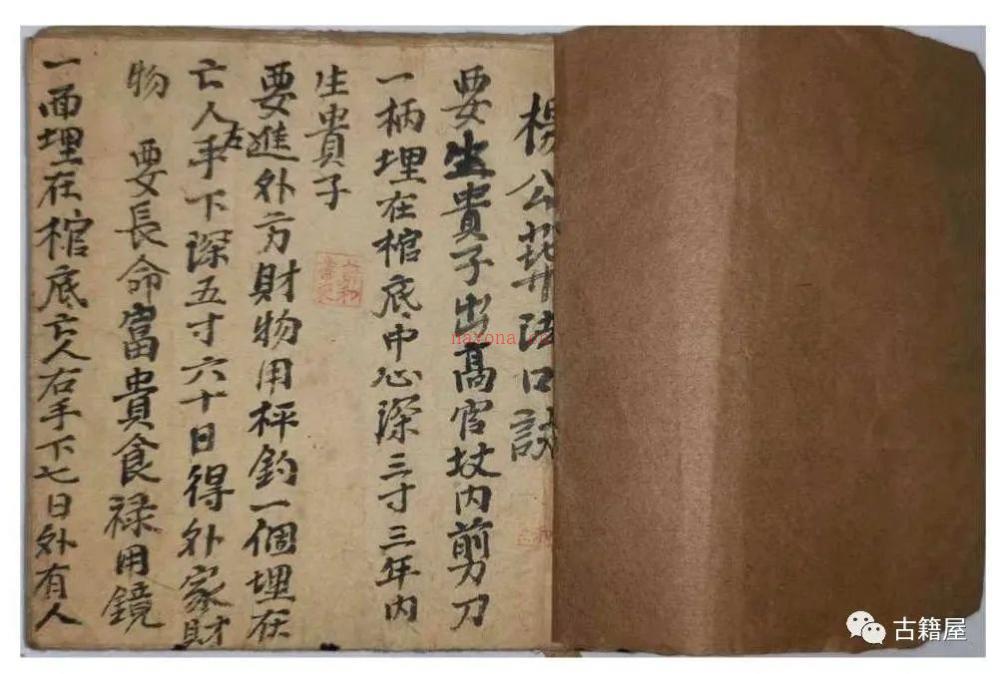 楊公葬法口訣
要生貴子出高官坟內剪刀
一柄埋在棺底中心深三寸三年內
生貴子
要進外方財物用秤鈎一個埋在
亡人左手下深五寸六十日得外家財
物 要長命富貴食祿用鏡
一面埋在棺底亡人右手下七日外有人
古籍屋